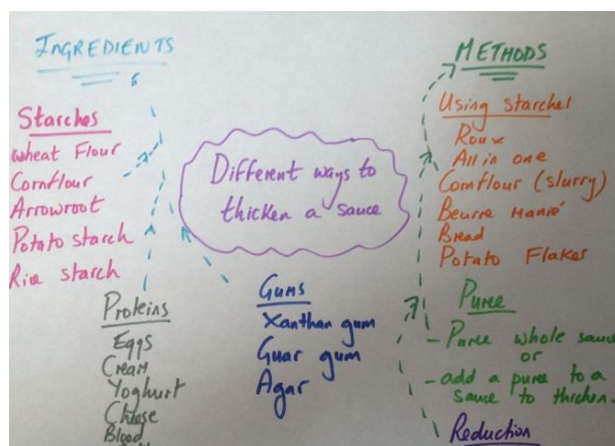 INGREDIENTS
Starches
Wheat Flour
Cornflour
Arrowroot
Potato starch
Rice starch
Proteins
Eggs
Cream
Yoghurt
Cheese
Blood
Different ways to
thicken a sauce
Gums
Xanthan gum
Guar gum
Agar
METHODS
Using starches
Roux
All in one
Cornflour (slurry)
Beurre Manié
Bread
Potato Flakes
Puree
- Puree whole sauce
or
- add a puree to a
sauce to thicken.
Reduction